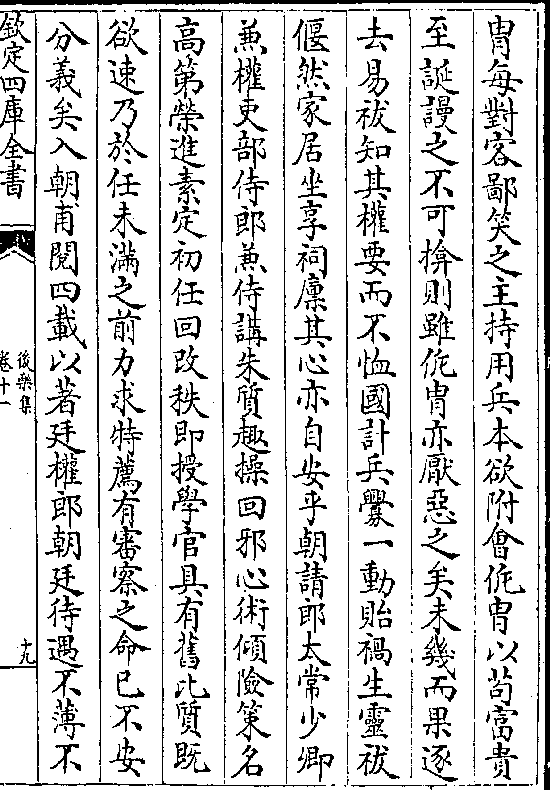 胄每對客鄙笑之主持用兵本欲附會侂胄以苟富貴
至誕謾之不可揜則雖侂胄亦厭惡之矣未幾而果逐
去易祓知其權要而不恤國計兵釁一動貽禍生靈祓
偃然家居坐享祠廩其心亦自安乎朝請郎太常少卿
兼權吏部侍郎兼侍講朱質趣操回邪心術傾險策名
高第榮進素定初任回改秩即授學官具有舊比質既
欲速乃於任未滿之前力求特薦有審察之命已不安
分義矣入朝甫閱四載以著廷權郎朝廷待遇不薄不
欽定四庫全書
後樂集
卷十一
十九